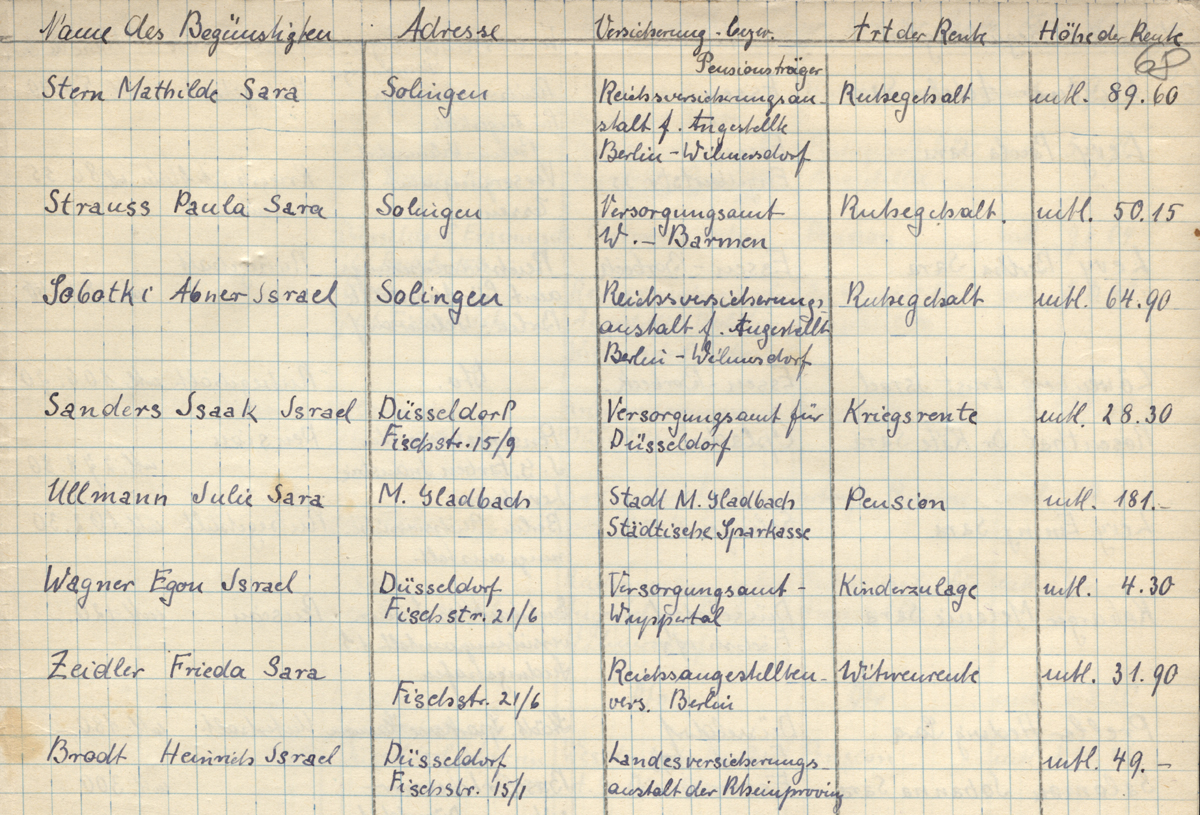 Name des Begünstigten Adresse Versicherung-bezw. Art der Rente Höhe der Rente
Pensionsträger 68
Stern Mathilde Sara Solingen Reichsversicherungsan- Ruhegehalt mtl. 89.60
stalt f. Angestellte
Berlin-Wilmersdorf
Strauss Paula Sara Solingen Versorgungsamt Ruhegehalt. mtl. 50.15
W.-Barmen
Sobotki Abner Israel Solingen Reichsversicherungs- Ruhegehalt mtl. 64.90
anstalt f. Angestellt
Berlin-Wilmersdorf
Sanders Isaak Israel Düsseldorf Versorgungsamt für Kriegsrente mtl. 28.30
Fischstr. 15/9 Düsseldorf
Ullmann Julie Sara M. Gladbach Stadt M. Gladbach Pension mtl. 181.-
Städtische Sparkasse
Wagner Egon Israel Düsseldorf Versorgungsamt- Kinderzulage mtl. 4.30
Fischstr. 21/6 Wuppertal
Zeidler Frieda Sara Reichsangestellten- Witwenrente mtl. 31.90
Fischstr. 21/6 vers. Berlin
Brodt Heinrich Israel Düsseldorf Landesversicherungs- mtl. 49.-
Fischstr. 15/1 anstalt der Rheinprovinz